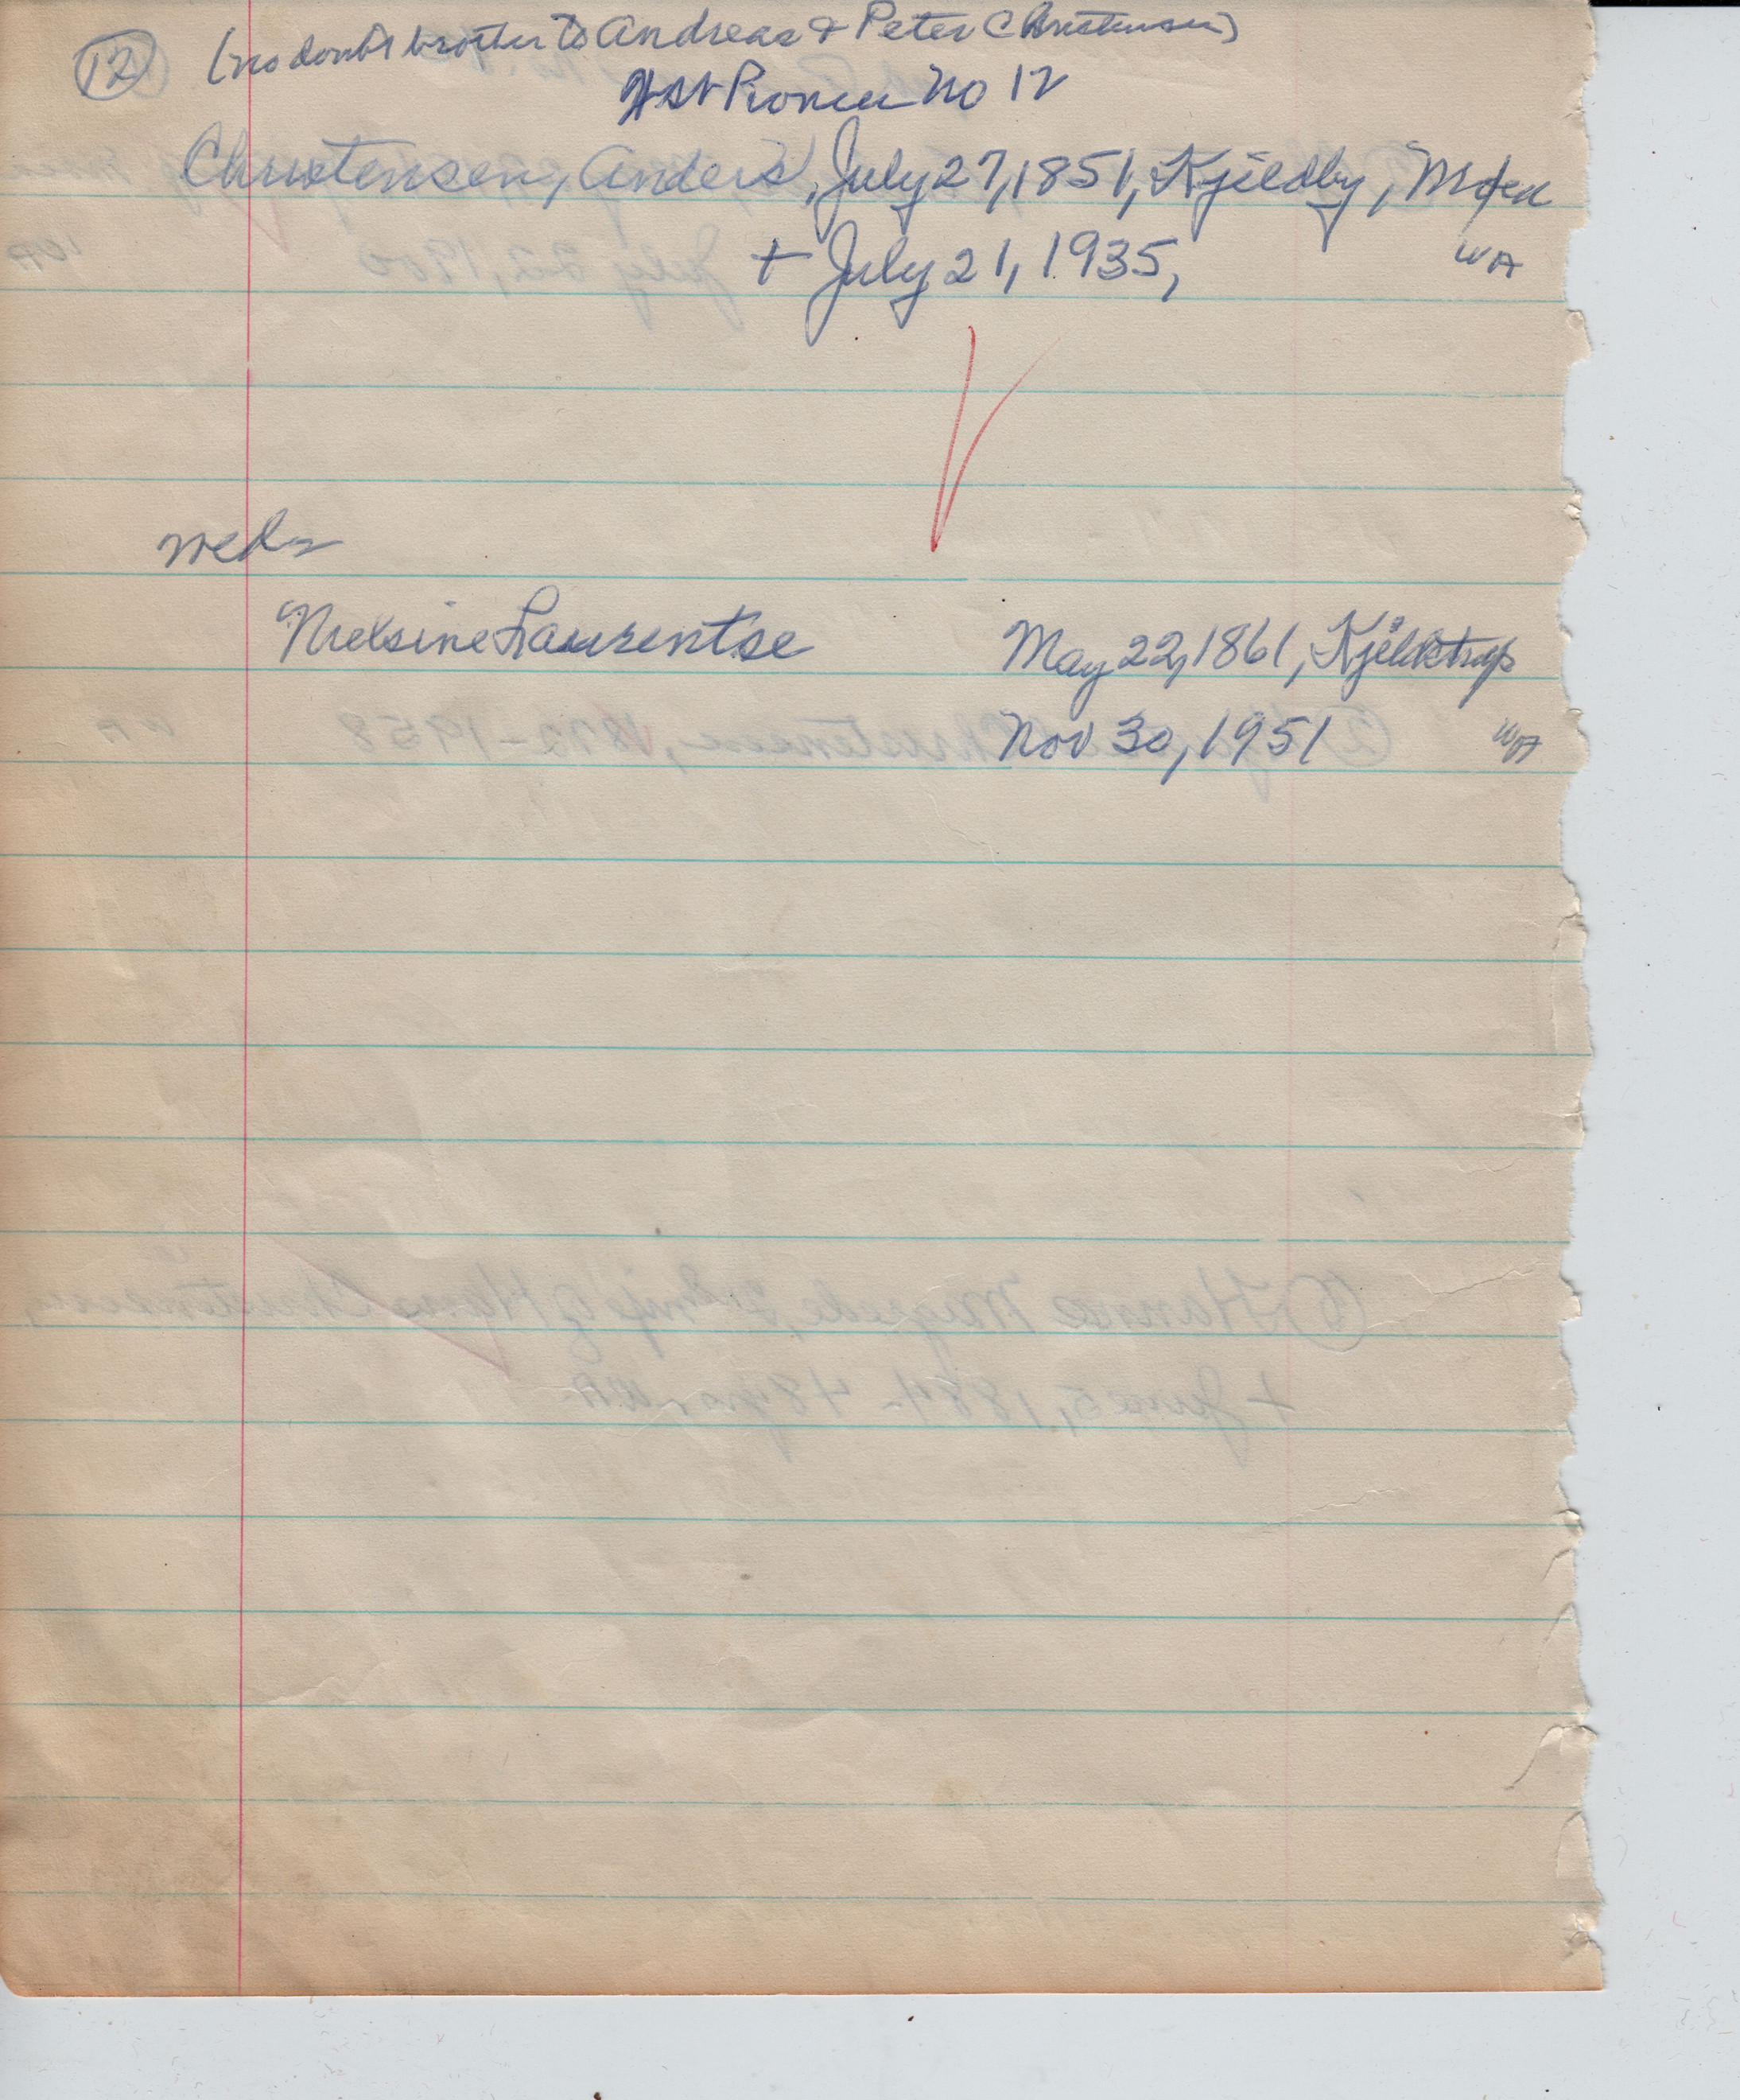 (12) (no doubt brother to Andreas & Peter Christensen)
Pioneer No 12
Christensen, Anders, July 27, 1851, Kjeldby, Møen
+ July 21, 1935, WA
wed
Nielsine Laurentse May 22, 1861, 
Nov 30, 1951 WA